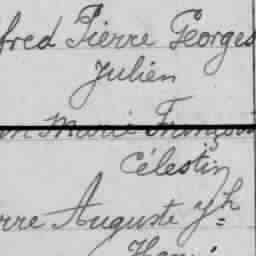 fred Pierre Georges
Julien
Marie François
Célestin
rre Auguste Jh
Henri